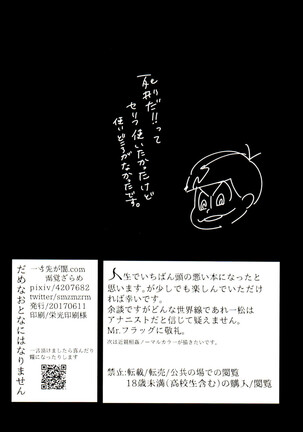 死刑だ!!って
セリフ使いたかったけど
使いどころがなかったです。
人生でいちばん頭の悪い本になったと
思います。が少しでも楽しんでいただけ
れば幸いです。
余談ですがどんな世界線であれ一松は
アナニストだと信じて疑えません。
Mr.フラッグに敬礼。
次は近親相姦ノーマルカラーが描きたいです。
禁止:転載/転売/公共の場での閲覧
18歳未満(高校生含む)の購入/閲覧
一寸先が闇.com
雨夜ざらめ
pixiv/4207682
twitter/smzmzrm
発行/20170611
印刷/栄光印刷様
一言頂けましたら喜んだり
糧になったりします
だめなおとなにはなりません